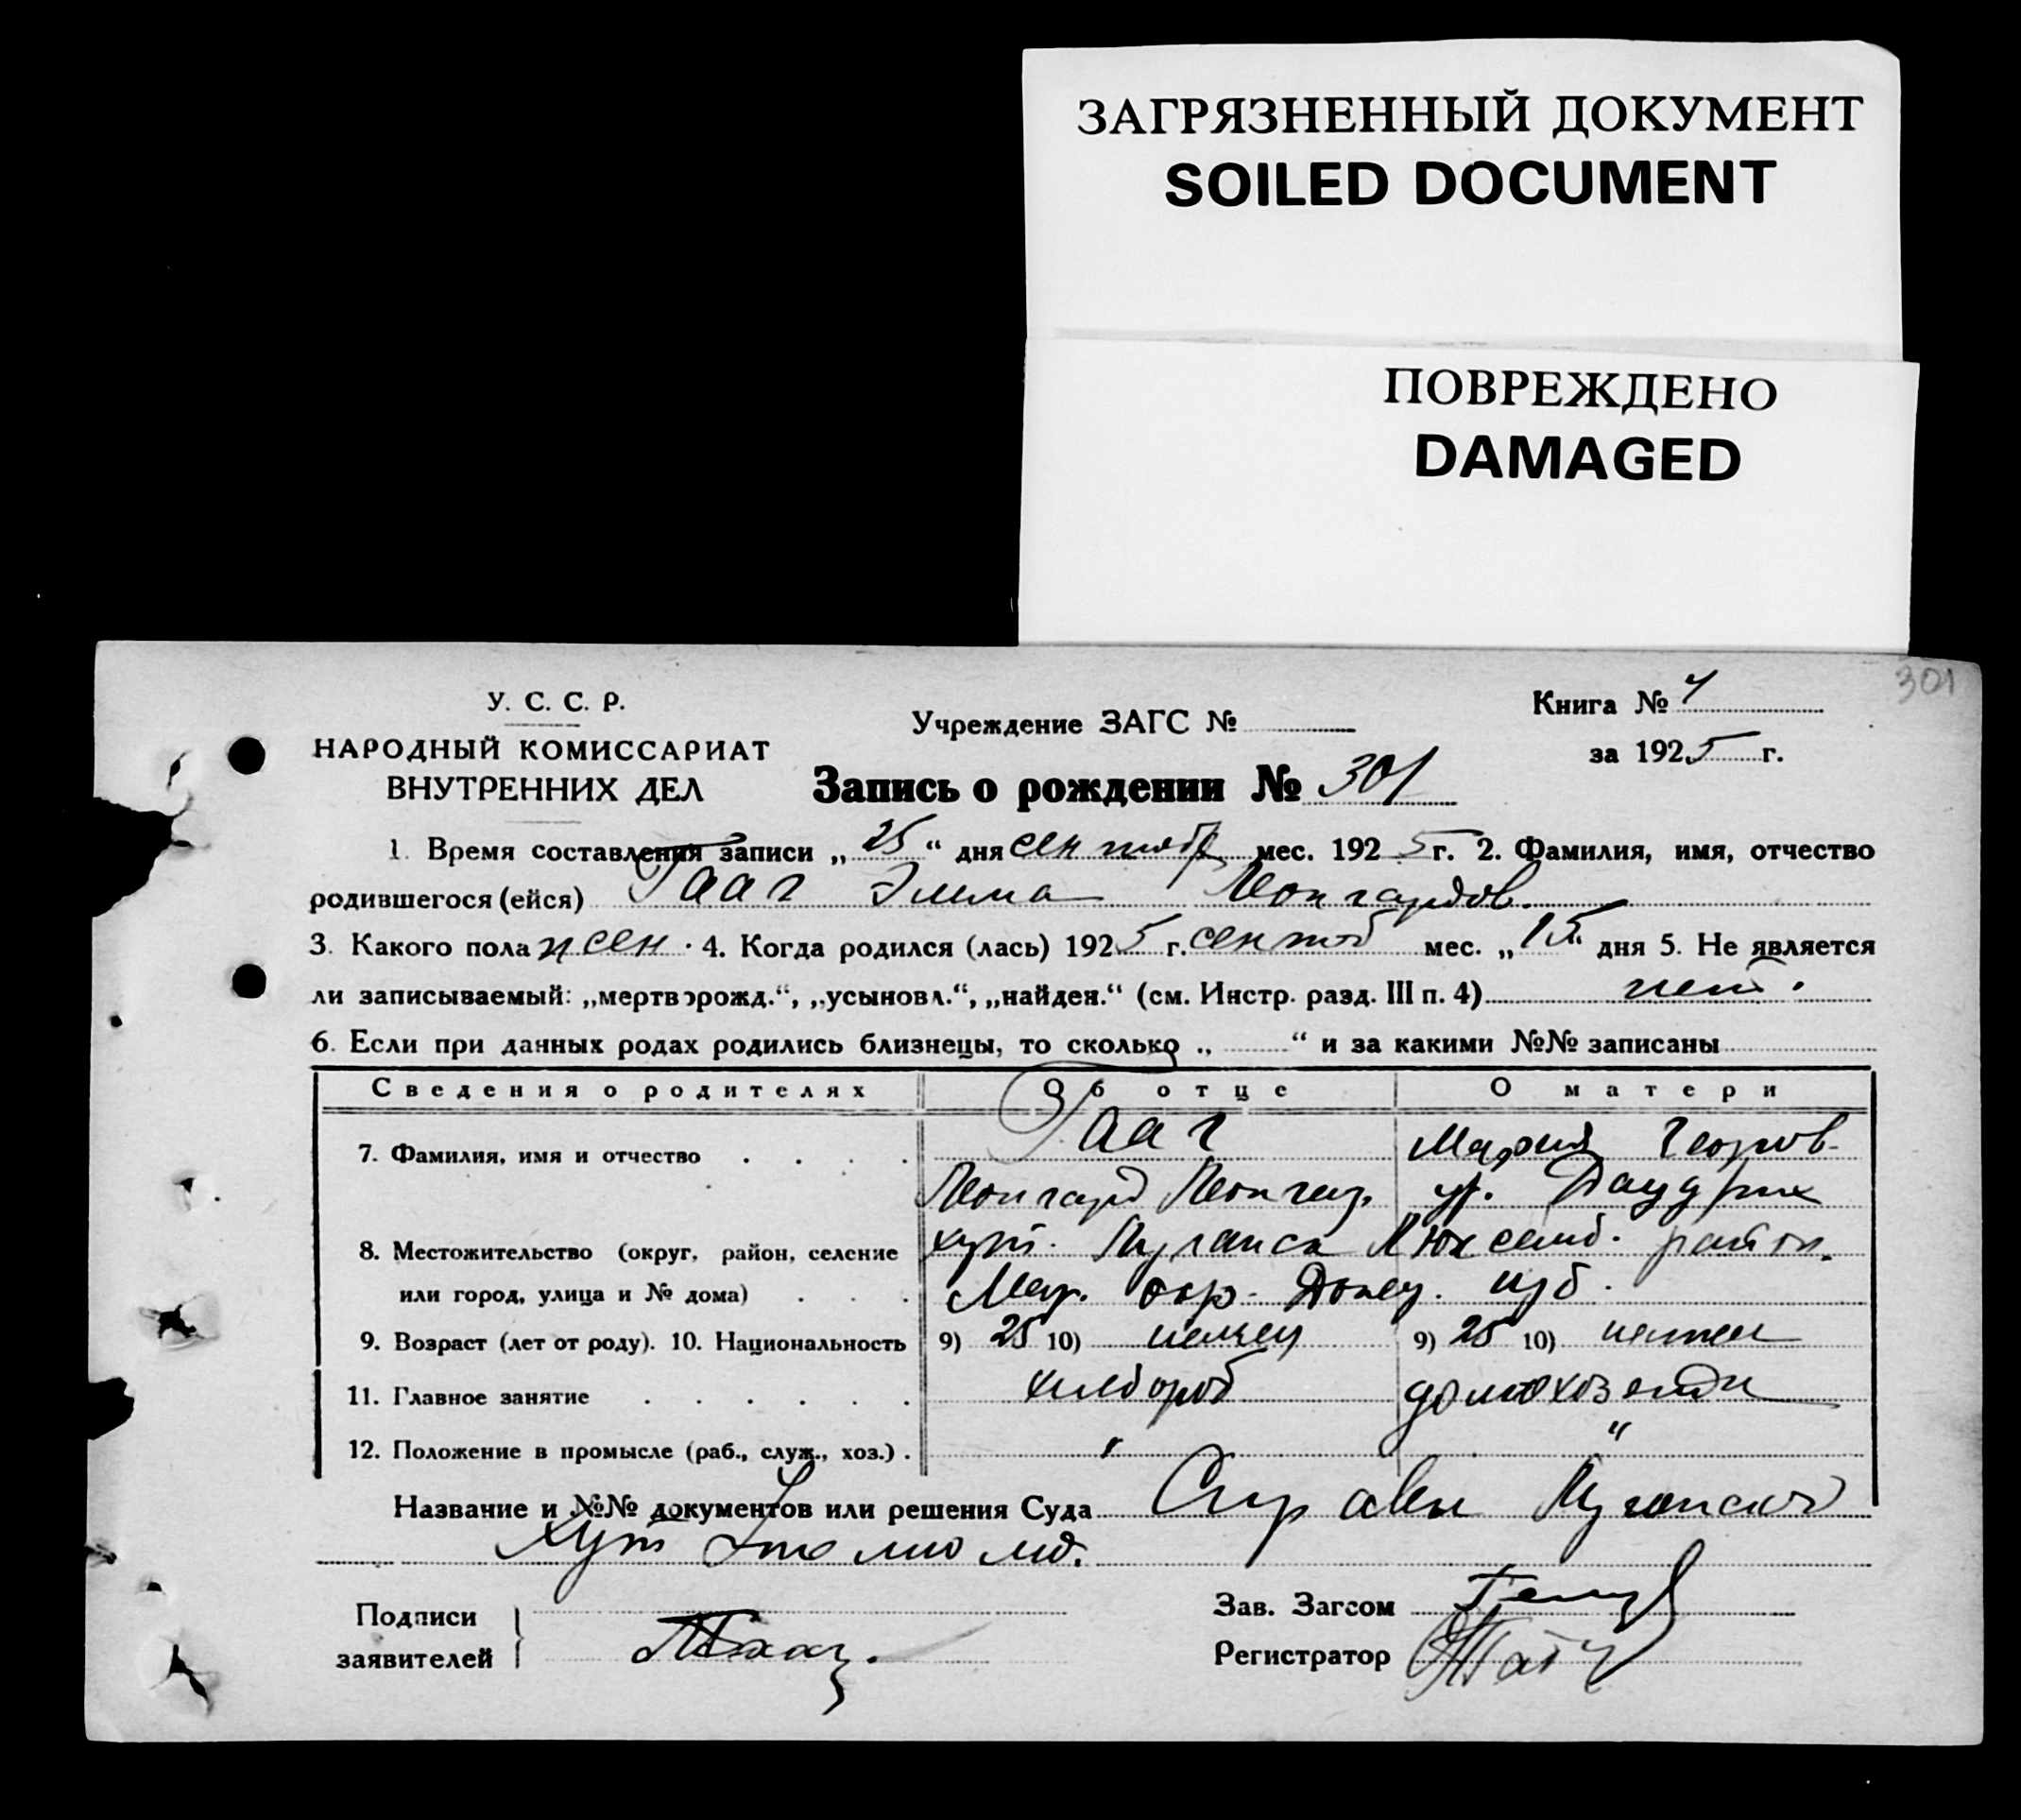 ЗАГРЯЗНЕННЫЙ ДОКУМЕНТ
SOILED DOCUMENT
ПОВРЕЖДЕНО
DAMAGED
301
У. С. С. Р.
НАРОДНЫЙ КОМИССАРИАТ
ВНУТРЕННИХ ДЕЛ
Учреждение ЗАГС №
Книга №
за 1925 г.
Запись о рождении № 301
1. Время составления записи „ 25 “ дня сентябр мес. 1925 г. 2. Фамилия, имя, отчество
родившегося (ейся) Гааг Элма Леонгардов.
3. Какого пола жен. 4. Когда родился (лась) 1925 г. сентяб мес. „ 15 “ дня 5. Не является
ли записываемый: „мертворожд.“, „усыновл.“, „найден.“ (см. Инстр. разд. III п. 4) нет.
6. Если при данных родах родились близнецы, то сколько „ “ и за какими №№ записаны
Сведения о родителях Об отце О матери
7. Фамилия, имя и отчество Гааг Мария Георгов-
Леонгард Леонгар. ур.
8. Местожительство (округ, район, селение хут. Люксемб. район.
или город, улица и № дома) Мар. окр. Донец. губ.
9. Возраст (лет от роду). 10. Национальность 9) 25 10) немец 9) 25 10) немка
11. Главное занятие хлебороб домохозяйн
12. Положение в промысле (раб., служ., хоз.) " "
Название и №№ документов или решения Суда Справки
хут
Подписи
заявителей
Зав. Загсом
Регистратор